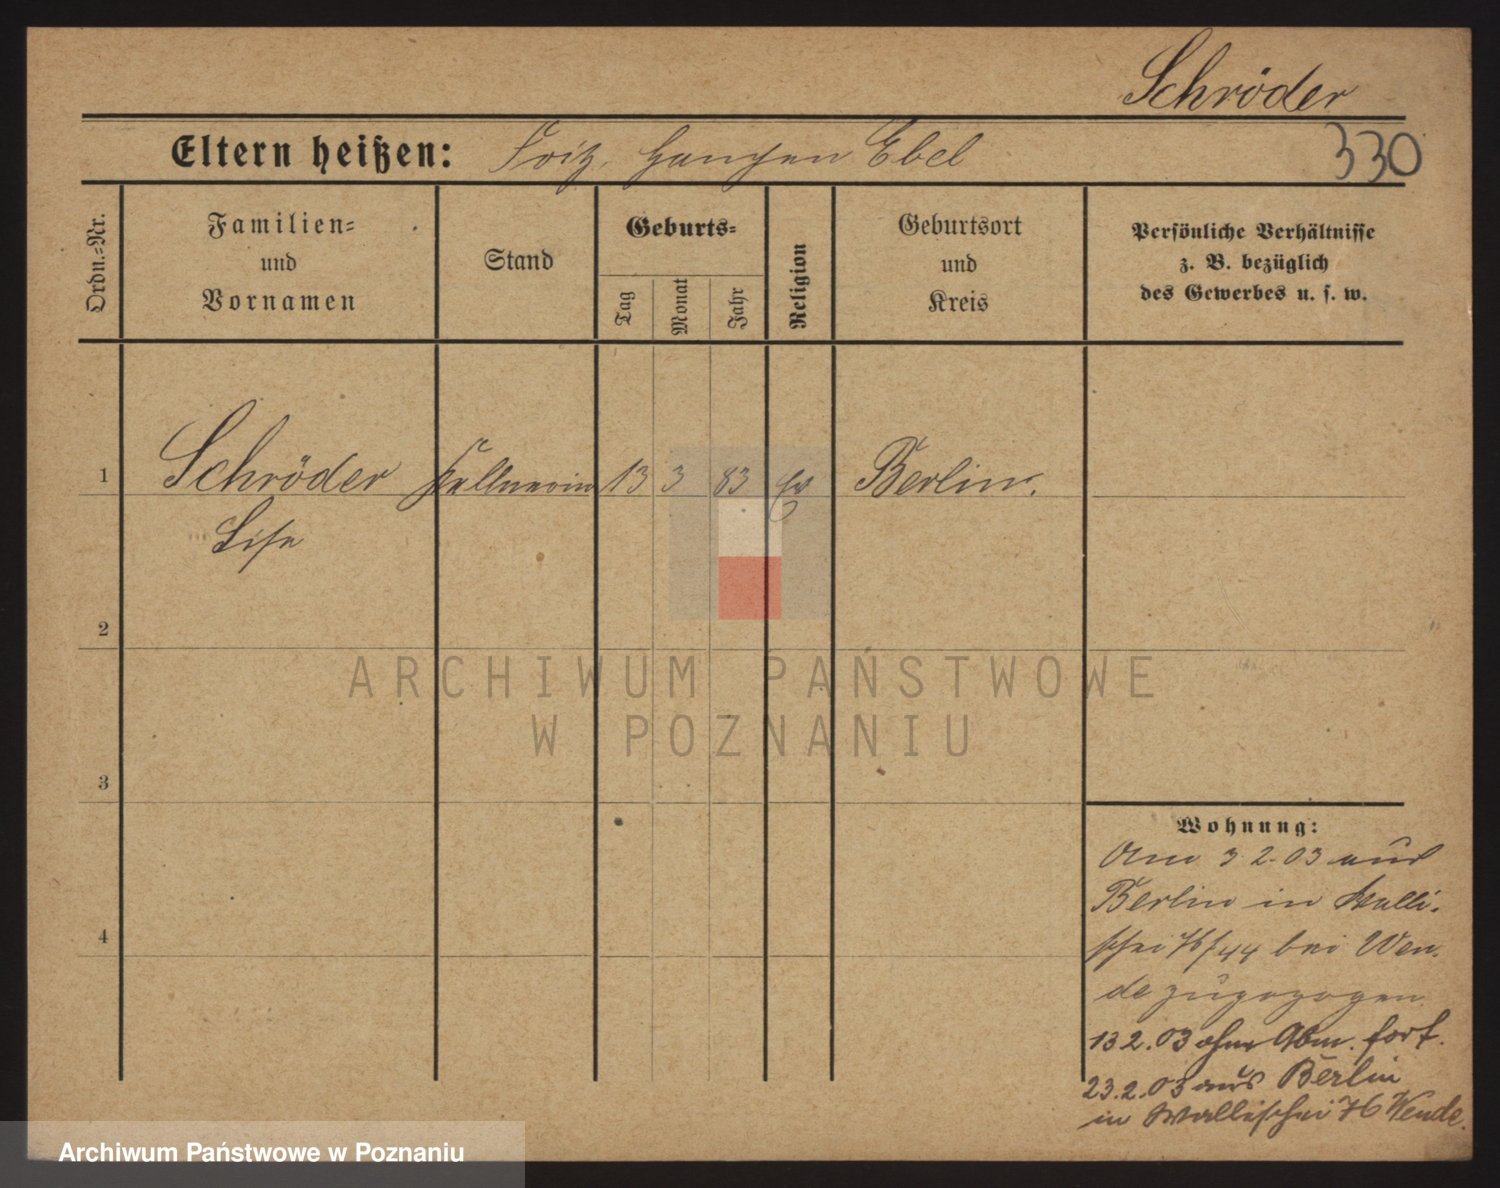 Schröder
330
Eltern heißen: Fritz, geb. Ebel
Ordn.-Nr.
Familien=
und
Vornamen
Stand
Geburts=
Tag
Monat
Jahr
Religion
Geburtsort
und
Kreis
Persönliche Verhältnisse
z. B. bezüglich
des Gewerbes u. s. w.
1 Schröder Kellnerin 13 3 83 ev Berlin.
Lise
2
3
4
Wohnung:
Am 3 2. 03 aus
Berlin in Walli-
schei 76/44 bei Wen-
de zugezogen
13 2. 03 ohne Abm. fort.
23.2.03 aus Berlin
in Wallischei 76 Wende.
ARCHIWUM PAŃSTWOWE
W POZNANIU
Archiwum Państwowe w Poznaniu